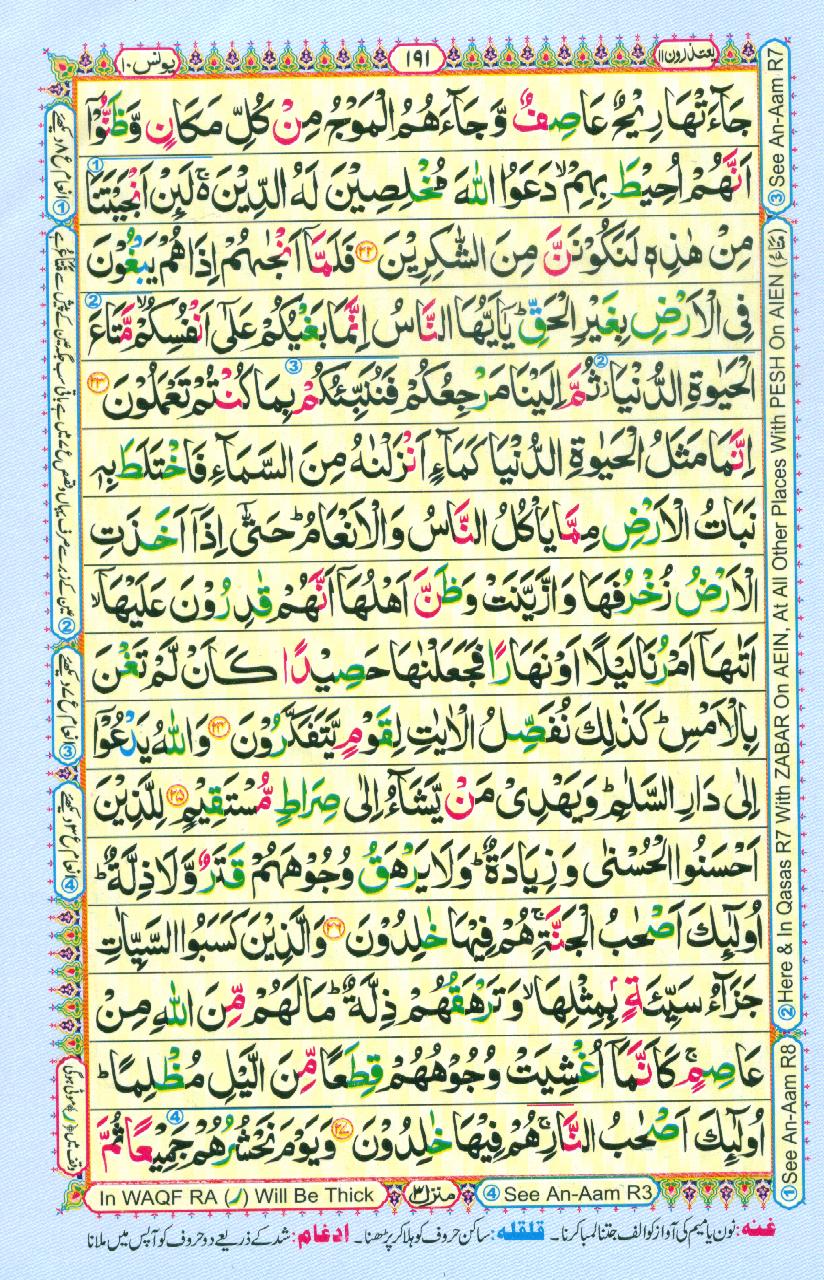 یونس ۱۰
۱۹۱
یعتذرون ۱۱
جَآءَتْهَا رِیْحٌ عَاصِفٌ وَّجَآءَهُمُ الْمَوْجُ مِنْ كُلِّ مَكَانٍ وَّظَنُّوْۤا
اَنَّهُمْ اُحِیْطَ بِهِمْ ۙ دَعَوُا اللّٰهَ مُخْلِصِیْنَ لَهُ الدِّیْنَ ۚ۬ لَىِٕنْ اَنْجَیْتَنَا
مِنْ هٰذِهٖ لَنَكُوْنَنَّ مِنَ الشّٰكِرِیْنَ ۲۲ فَلَمَّاۤ اَنْجٰىهُمْ اِذَا هُمْ یَبْغُوْنَ
فِی الْاَرْضِ بِغَیْرِ الْحَقِّ ؕ یٰۤاَیُّهَا النَّاسُ اِنَّمَا بَغْیُكُمْ عَلٰۤی اَنْفُسِكُمْ ۙ مَّتَاعَ
الْحَیٰوةِ الدُّنْیَا ؗ ثُمَّ اِلَیْنَا مَرْجِعُكُمْ فَنُنَبِّئُكُمْ بِمَا كُنْتُمْ تَعْمَلُوْنَ ۲۳
اِنَّمَا مَثَلُ الْحَیٰوةِ الدُّنْیَا كَمَآءٍ اَنْزَلْنٰهُ مِنَ السَّمَآءِ فَاخْتَلَطَ بِهٖ
نَبَاتُ الْاَرْضِ مِمَّا یَاْكُلُ النَّاسُ وَالْاَنْعَامُ ؕ حَتّٰۤی اِذَاۤ اَخَذَتِ
الْاَرْضُ زُخْرُفَهَا وَازَّیَّنَتْ وَظَنَّ اَهْلُهَاۤ اَنَّهُمْ قٰدِرُوْنَ عَلَیْهَاۤ ۙ
اَتٰىهَاۤ اَمْرُنَا لَیْلًا اَوْ نَهَارًا فَجَعَلْنٰهَا حَصِیْدًا كَاَنْ لَّمْ تَغْنَ
بِالْاَمْسِ ؕ كَذٰلِكَ نُفَصِّلُ الْاٰیٰتِ لِقَوْمٍ یَّتَفَكَّرُوْنَ ۲۴ وَاللّٰهُ یَدْعُوْۤا
اِلٰی دَارِ السَّلٰمِ ؕ وَیَهْدِیْ مَنْ یَّشَآءُ اِلٰی صِرَاطٍ مُّسْتَقِیْمٍ ۲۵ لِلَّذِیْنَ
اَحْسَنُوا الْحُسْنٰی وَزِیَادَةٌ ؕ وَلَا یَرْهَقُ وُجُوْهَهُمْ قَتَرٌ وَّلَا ذِلَّةٌ ؕ
اُولٰٓىِٕكَ اَصْحٰبُ الْجَنَّةِ ۚ هُمْ فِیْهَا خٰلِدُوْنَ ۲۶ وَالَّذِیْنَ كَسَبُوا السَّیِّاٰتِ
جَزَآءُ سَیِّئَةٍۭ بِمِثْلِهَا ۙ وَتَرْهَقُهُمْ ذِلَّةٌ ؕ مَا لَهُمْ مِّنَ اللّٰهِ مِنْ
عَاصِمٍ ۚ كَاَنَّمَاۤ اُغْشِیَتْ وُجُوْهُهُمْ قِطَعًا مِّنَ الَّیْلِ مُظْلِمًا ؕ
اُولٰٓىِٕكَ اَصْحٰبُ النَّارِ ۚ هُمْ فِیْهَا خٰلِدُوْنَ ۲۷ وَیَوْمَ نَحْشُرُهُمْ جَمِیْعًا ثُمَّ
③ See An-Aam R7
② Here & In Qasas R7 With ZABAR On AEIN, At All Other Places With PESH On AIEN (مَتَاعُ)
① See An-Aam R8
④ See An-Aam R3
منزل ۳
In WAQF RA (ر) Will Be Thick
غنه: نون یا میم کی آواز کو الف جتنا لمبا کرنا۔ قلقله: ساکن حروف کو ہلا کر پڑھنا۔ ادغام: شد کے ذریعے دو حروف کو آپس میں ملانا